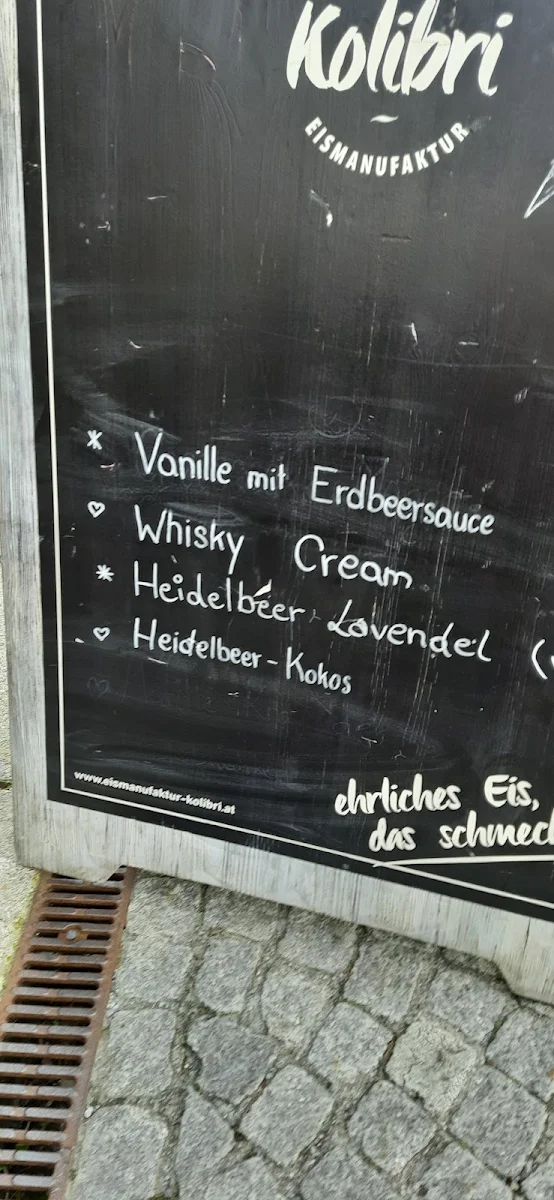 Kolibri
EISMANUFAKTUR
* Vanille mit Erdbeersauce
♡ Whisky Cream
* Heidelbeer-Lavendel (
♡ Heidelbeer-Kokos
www.eismanufaktur-kolibri.at
ehrliches Eis,
das schmeck